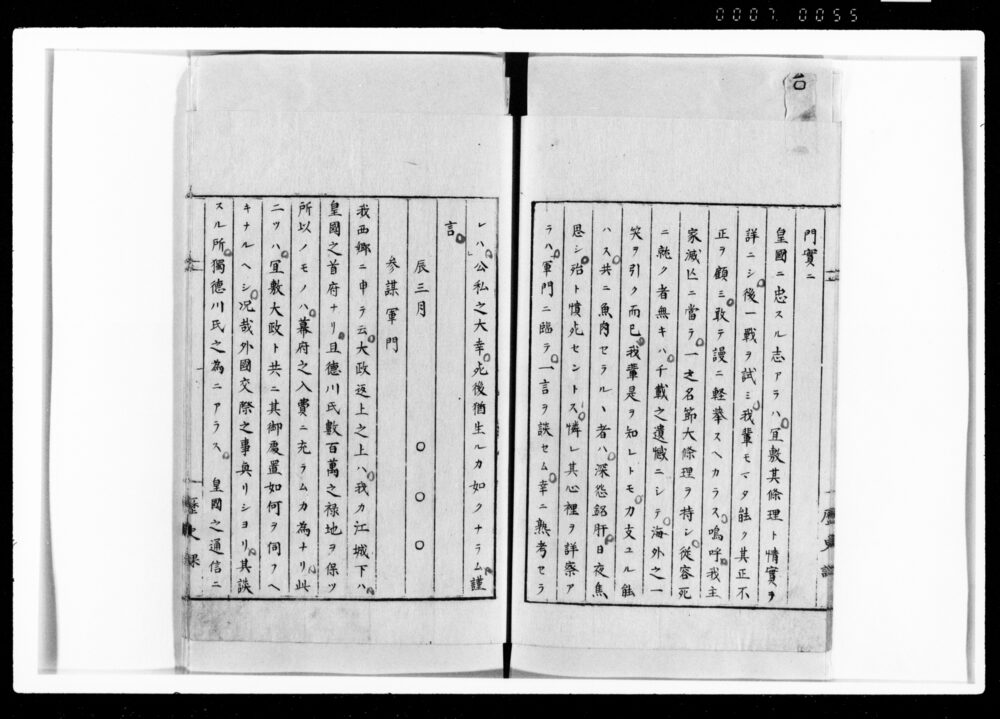 0007 0055
門實ニ
皇國ニ忠スル志アラハ宜敷其條理ト情實ヲ
詳ニシ後一戰ヲ試ミ我輩モマタ能ク其正不
正ヲ顧ミ敢テ謾ニ軽挙スヘカラス嗚呼我主
家滅亡ニ當ラ一之名節大條理ヲ持シ從容死
ニ就ク者無キハ千載之遺憾ニシテ海外之一
笑ヲ引ク而已我輩是ヲ知レトモカ支ユル能
ハス共ニ魚肉セラルヽ者ハ深怨銘肝日夜焦
思シ殆ト憤死セントス憐レ其心裡ヲ詳察ア
ラハ軍門ニ臨ラ一言ヲ談セム幸ニ熟考セラ
レハ公私之大幸死後猶生ルカ如クナラム謹
言
辰三月 〇〇〇
参謀軍門
我西郷ニ申ラ云大政返上之上ハ我カ江城下ハ
皇國之首府ナリ且德川氏數百萬之禄地ヲ保ツ
所以ノモノハ幕府之入費ニ充ラムカ為ナリ此
二ツハ宜敷大政ト共ニ其御處置如何ヲ伺フヘ
キナルヘシ况哉外國交際之事興リショリ其談
スル所獨德川氏之為ニアラス 皇國之通信ニ
歷史課